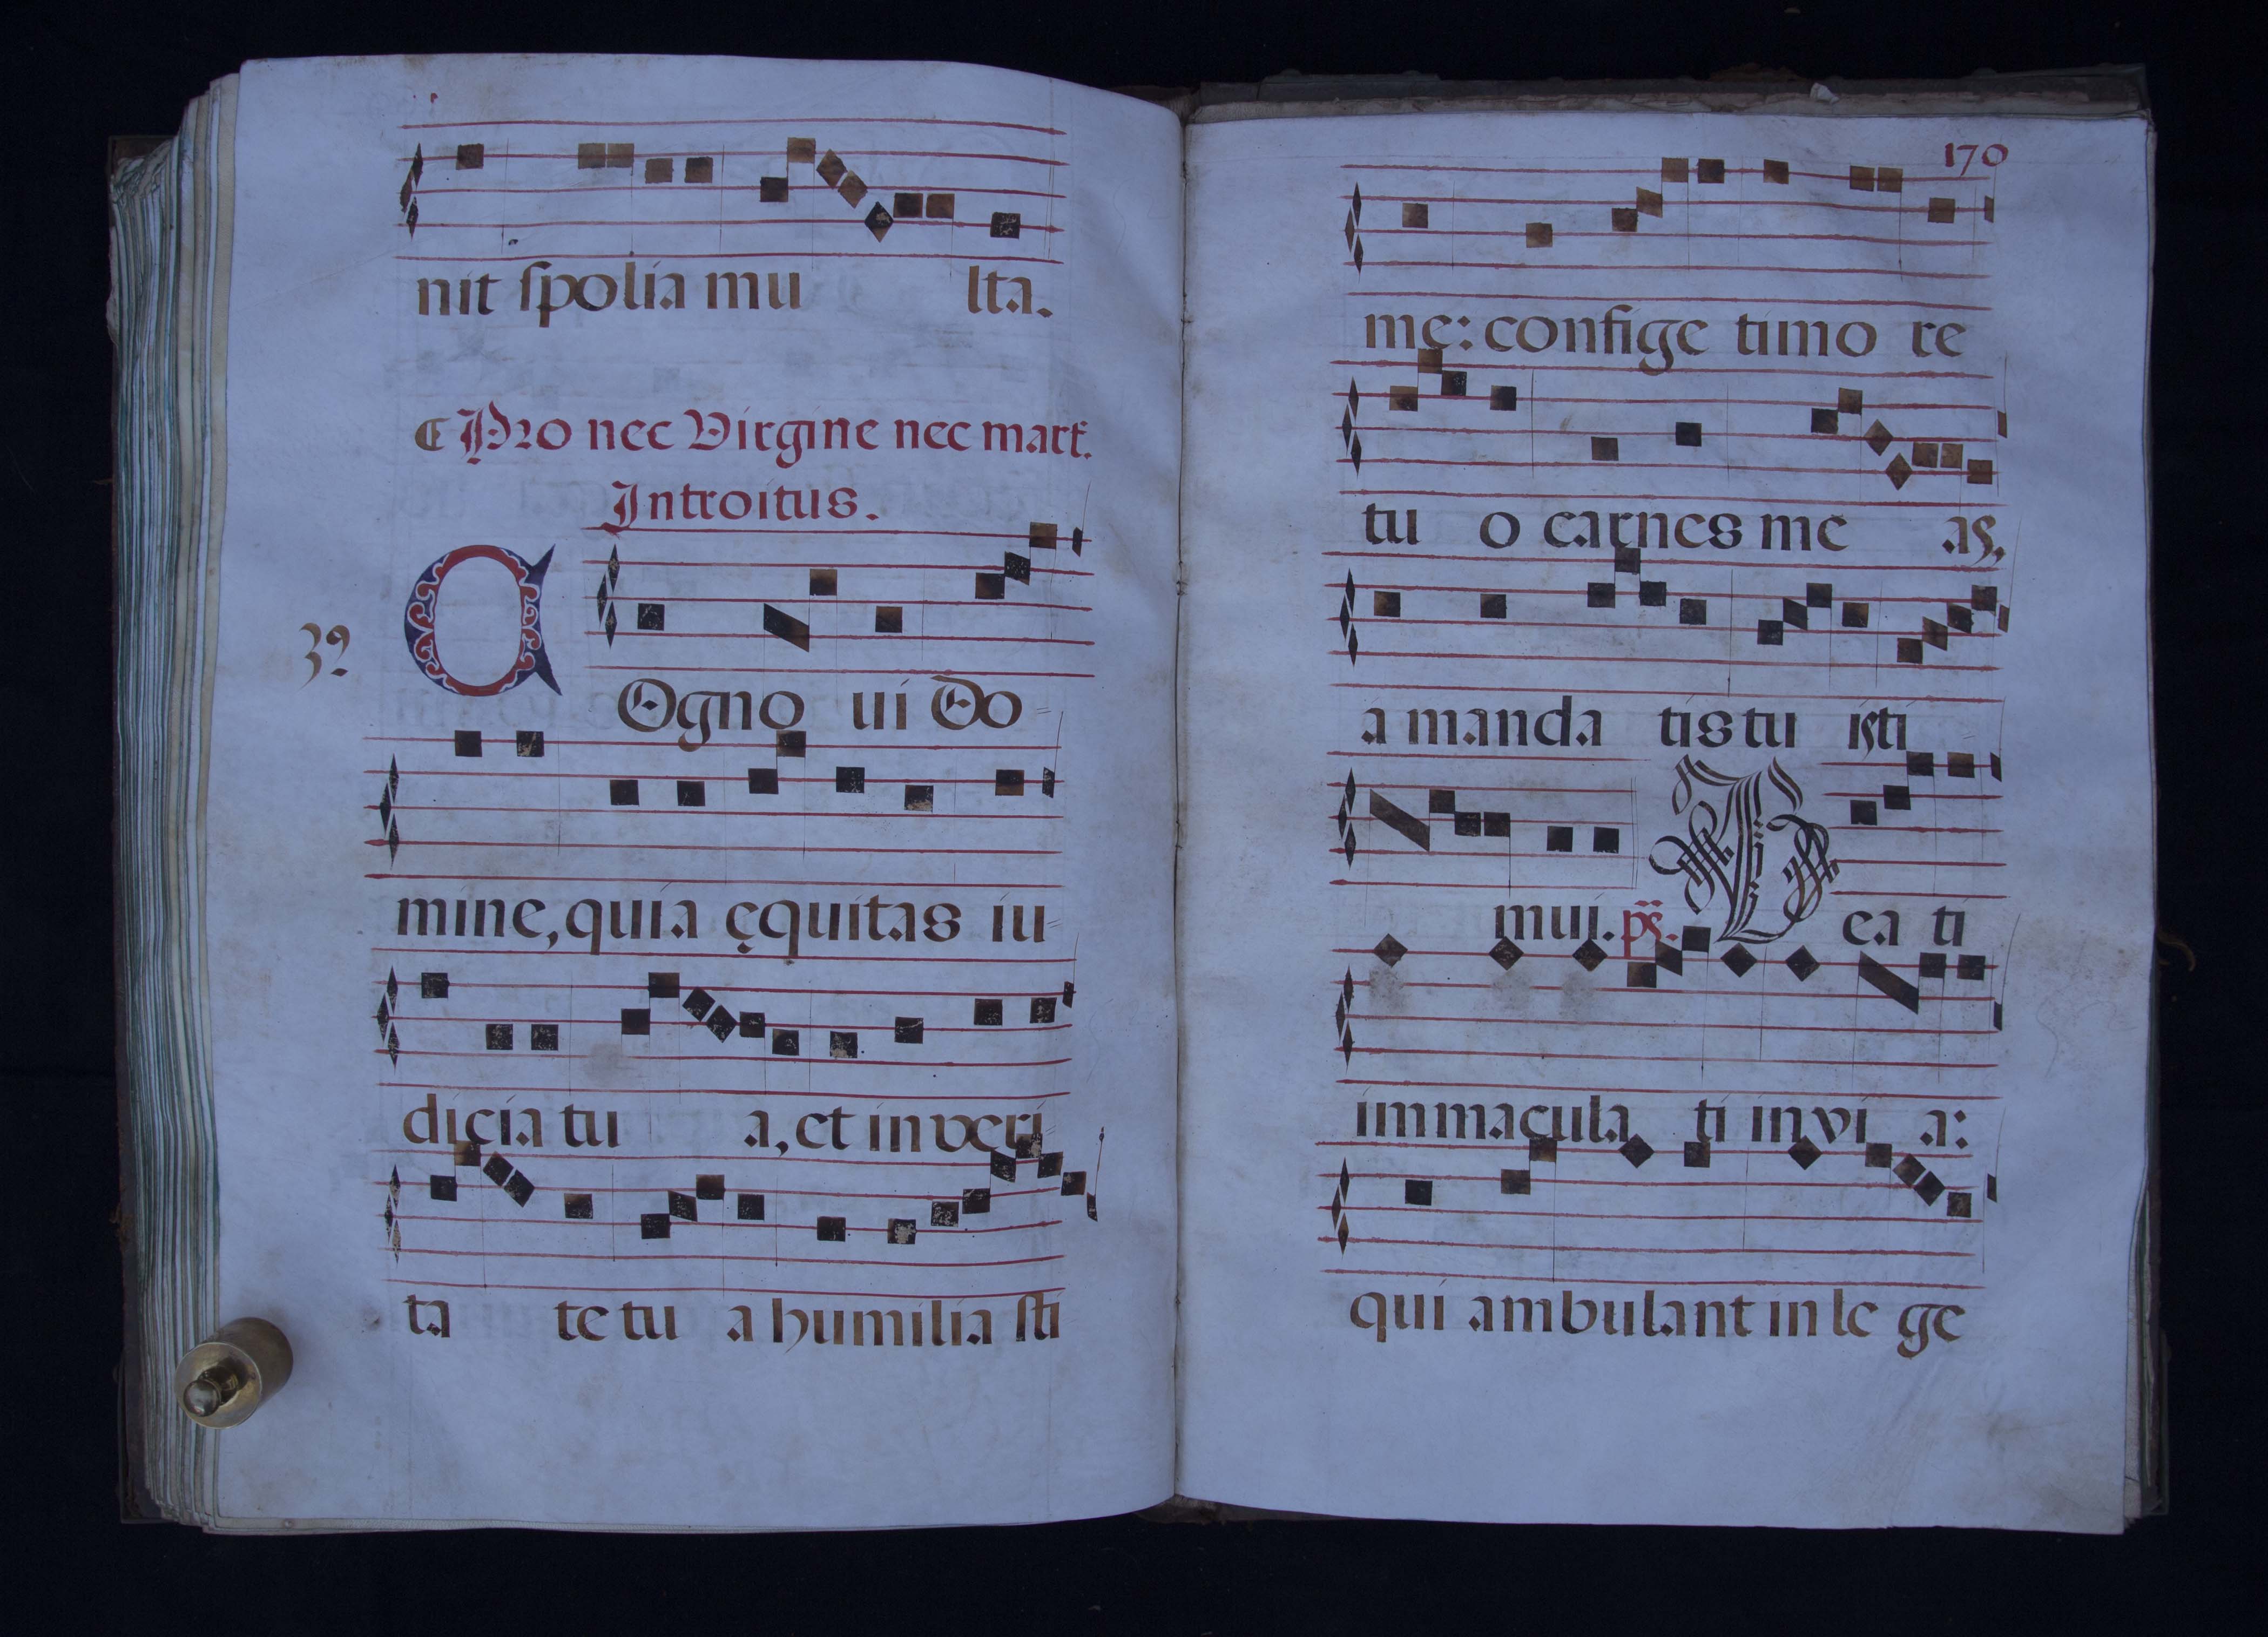 nit ſpolia mu lta.
¶ Pro nec Virgine nec mart.
Introitus.
39
COgno ui Do=
mine, quia ęquitas iu=
dicia tu a, et in veri
ta te tu a humilia ſti
170
me: confige timo re
tu o carnes me as,
a manda tis tu isti
mui. ps. Bea ti
immacula ti in vi a:
qui ambulant in le ge